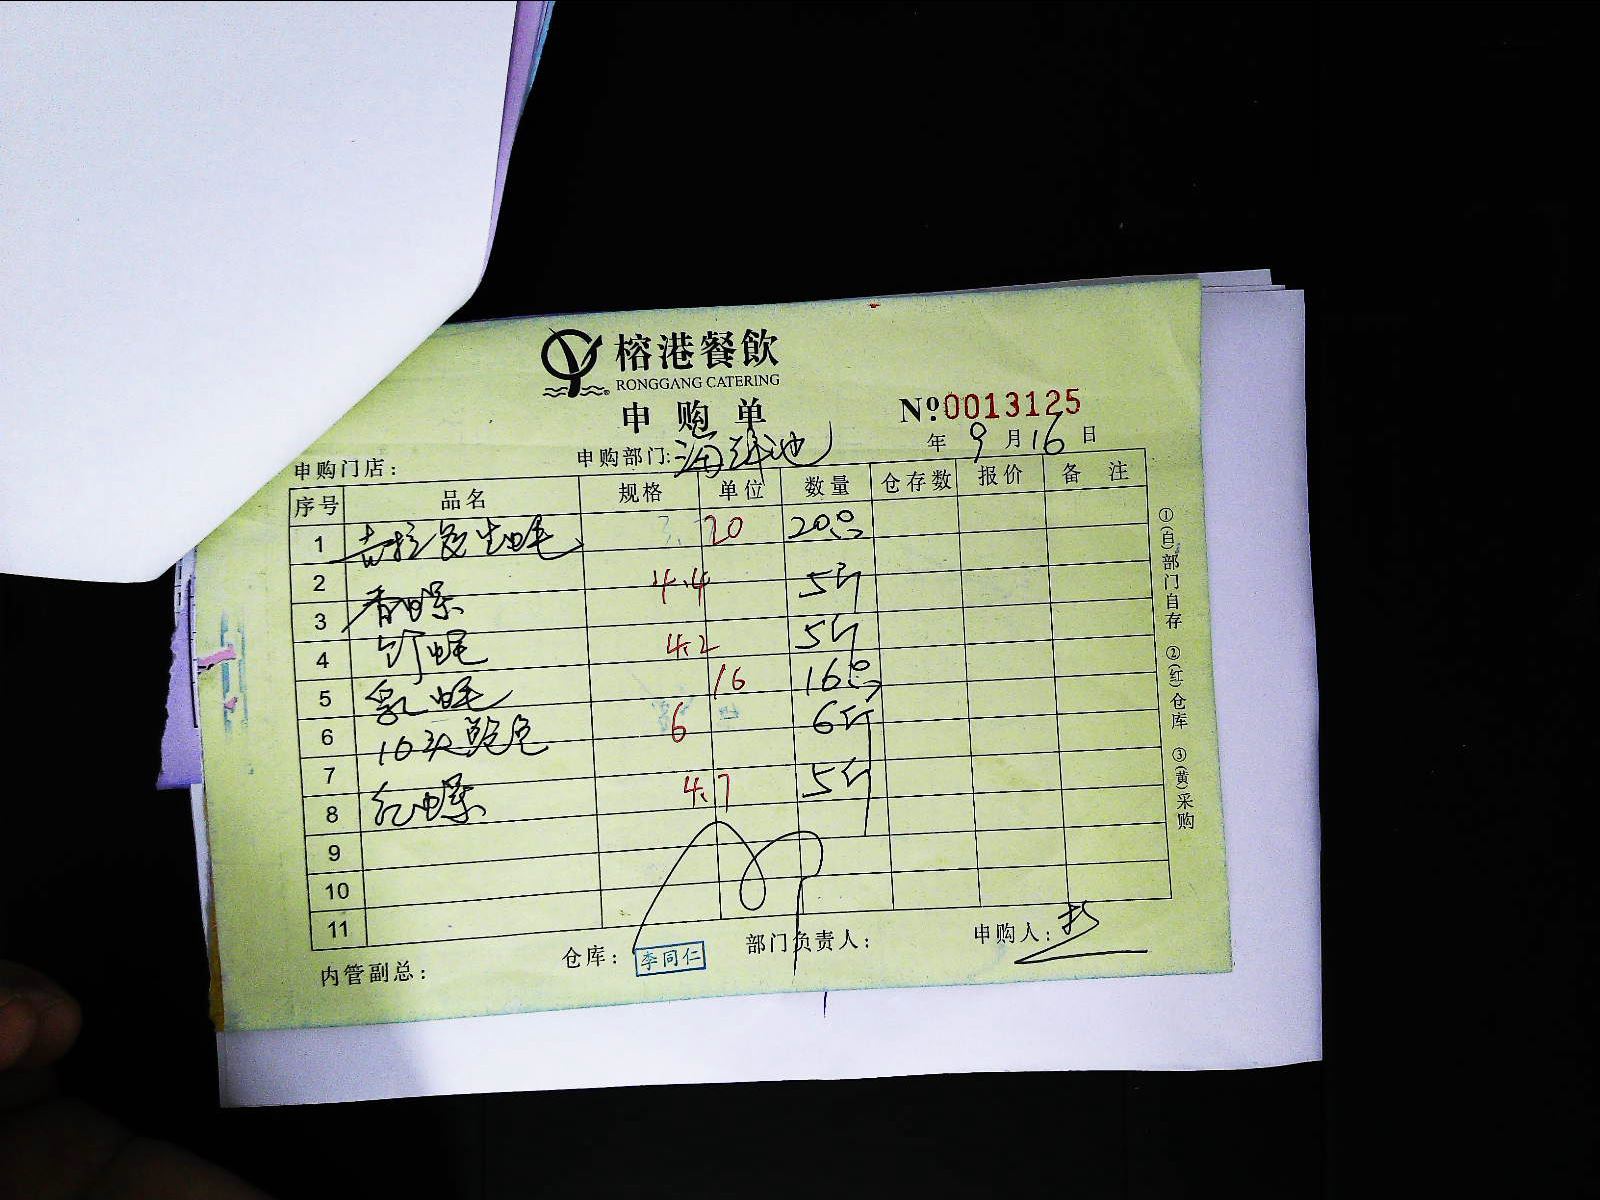 榕港餐飲
RONGGANG CATERING
申购单
№0013125
年 9 月 16 日
申购门店： 申购部门:海鲜池
序号 品名 规格 单位 数量 仓存数 报价 备注
1 吉拉多生蚝 20 20只
2 4.4 5斤
3 香螺
4 4.2 5斤
5 乳蚝 16 16只
6 10头鲍鱼 6 6斤
7 4.7 5斤
8 红螺
9
10
11
内管副总： 仓库： 李同仁 部门负责人： 申购人：
①(白)部门自存 ②(红)仓库 ③(黄)采购